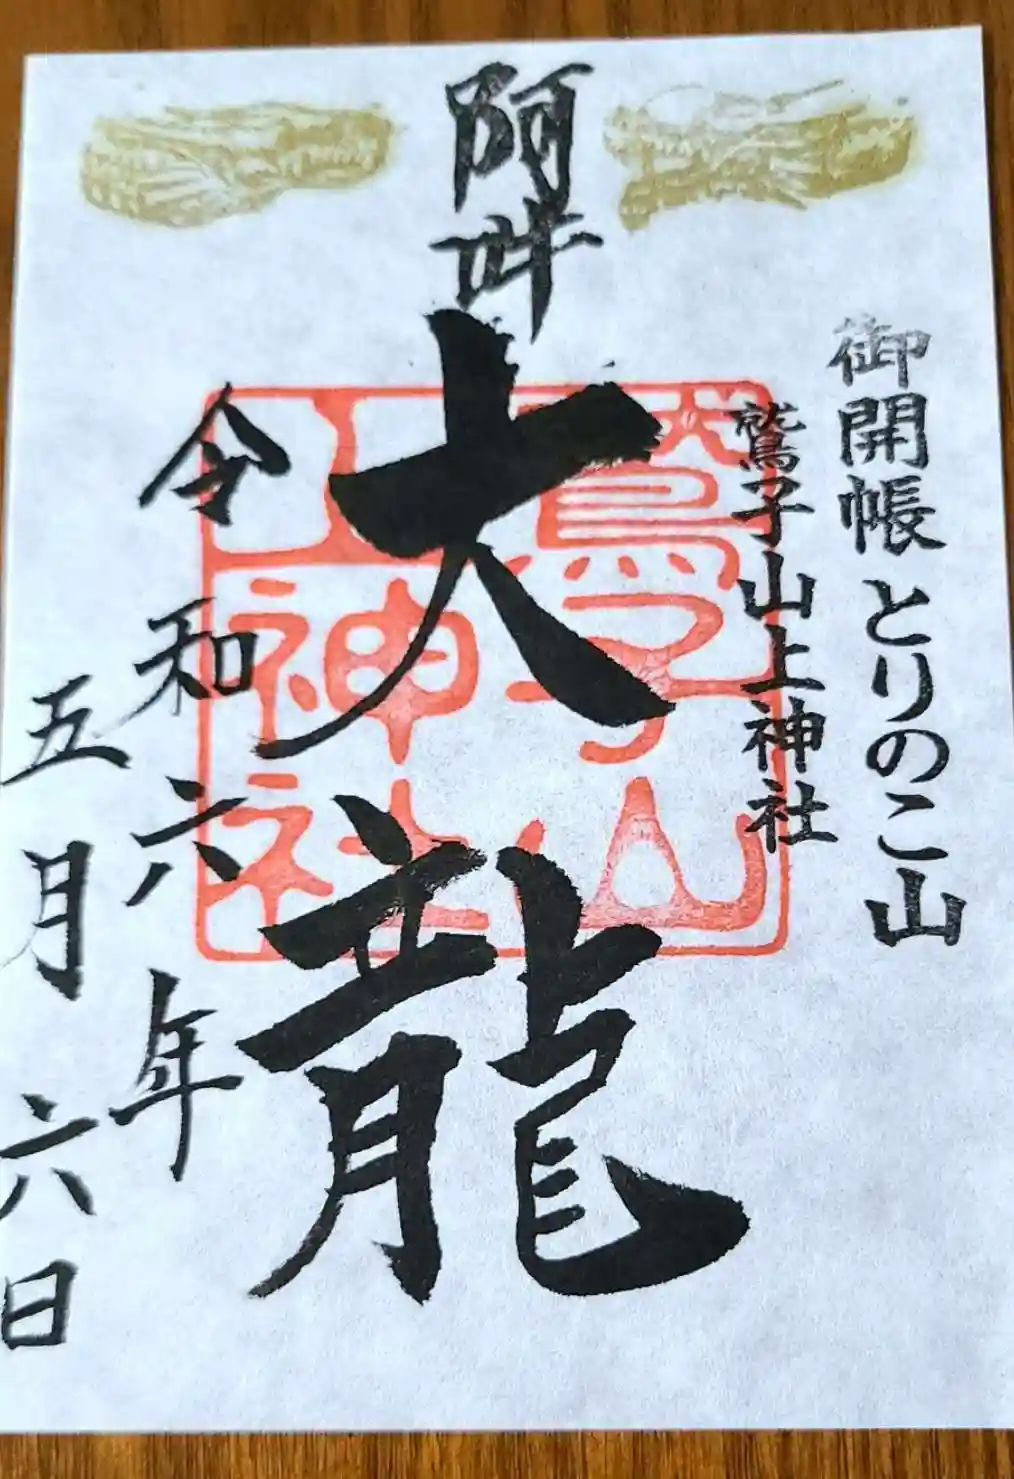 御開帳 とりのこ山
鷲子山上神社
阿吽
大龍
令和六年
五月六日
鷲子山
上神社